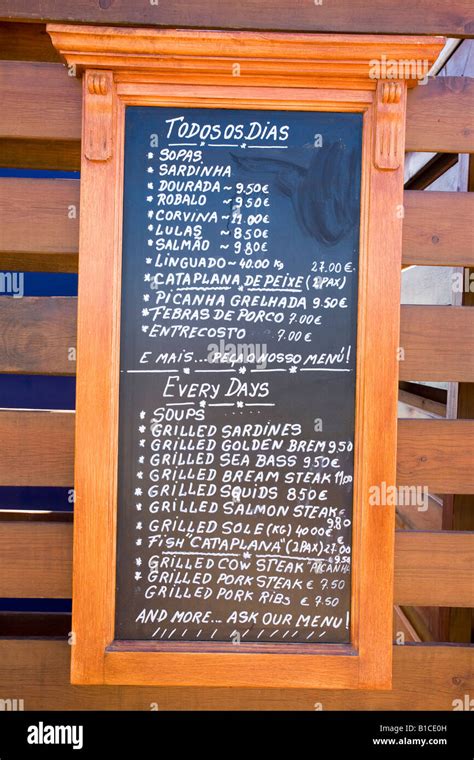 TODOS OS DIAS
* SOPAS
* SARDINHA
* DOURADA ~ 9.50€
* ROBALO ~ 9.50€
* CORVINA ~ 11.00€
* LULAS ~ 8.50€
* SALMÃO ~ 9.80€
* LINGUADO ~ 40.00 KG
* CATAPLANA DE PEIXE (2PAX) 27.00€
* PICANHA GRELHADA 9.50€
* FEBRAS DE PORCO 7.00€
* ENTRECOSTO 7.00€
E MAIS... PEÇA O NOSSO MENÚ!
EVERY DAYS
* SOUPS
* GRILLED SARDINES
* GRILLED GOLDEN BREM 9.50
* GRILLED SEA BASS 9.50€
* GRILLED BREAM STEAK 11.00
* GRILLED SQUIDS 8.50€
* GRILLED SALMON STEAK 9.80
* GRILLED SOLE (KG) 40.00€
* FISH "CATAPLANA" (2PAX) 27.00
* GRILLED COW STEAK "PICANHA" €9.50
* GRILLED PORK STEAK € 7.50
GRILLED PORK RIBS € 7.50
AND MORE... ASK OUR MENU!
alamy
Image ID: B1CE0H
www.alamy.com